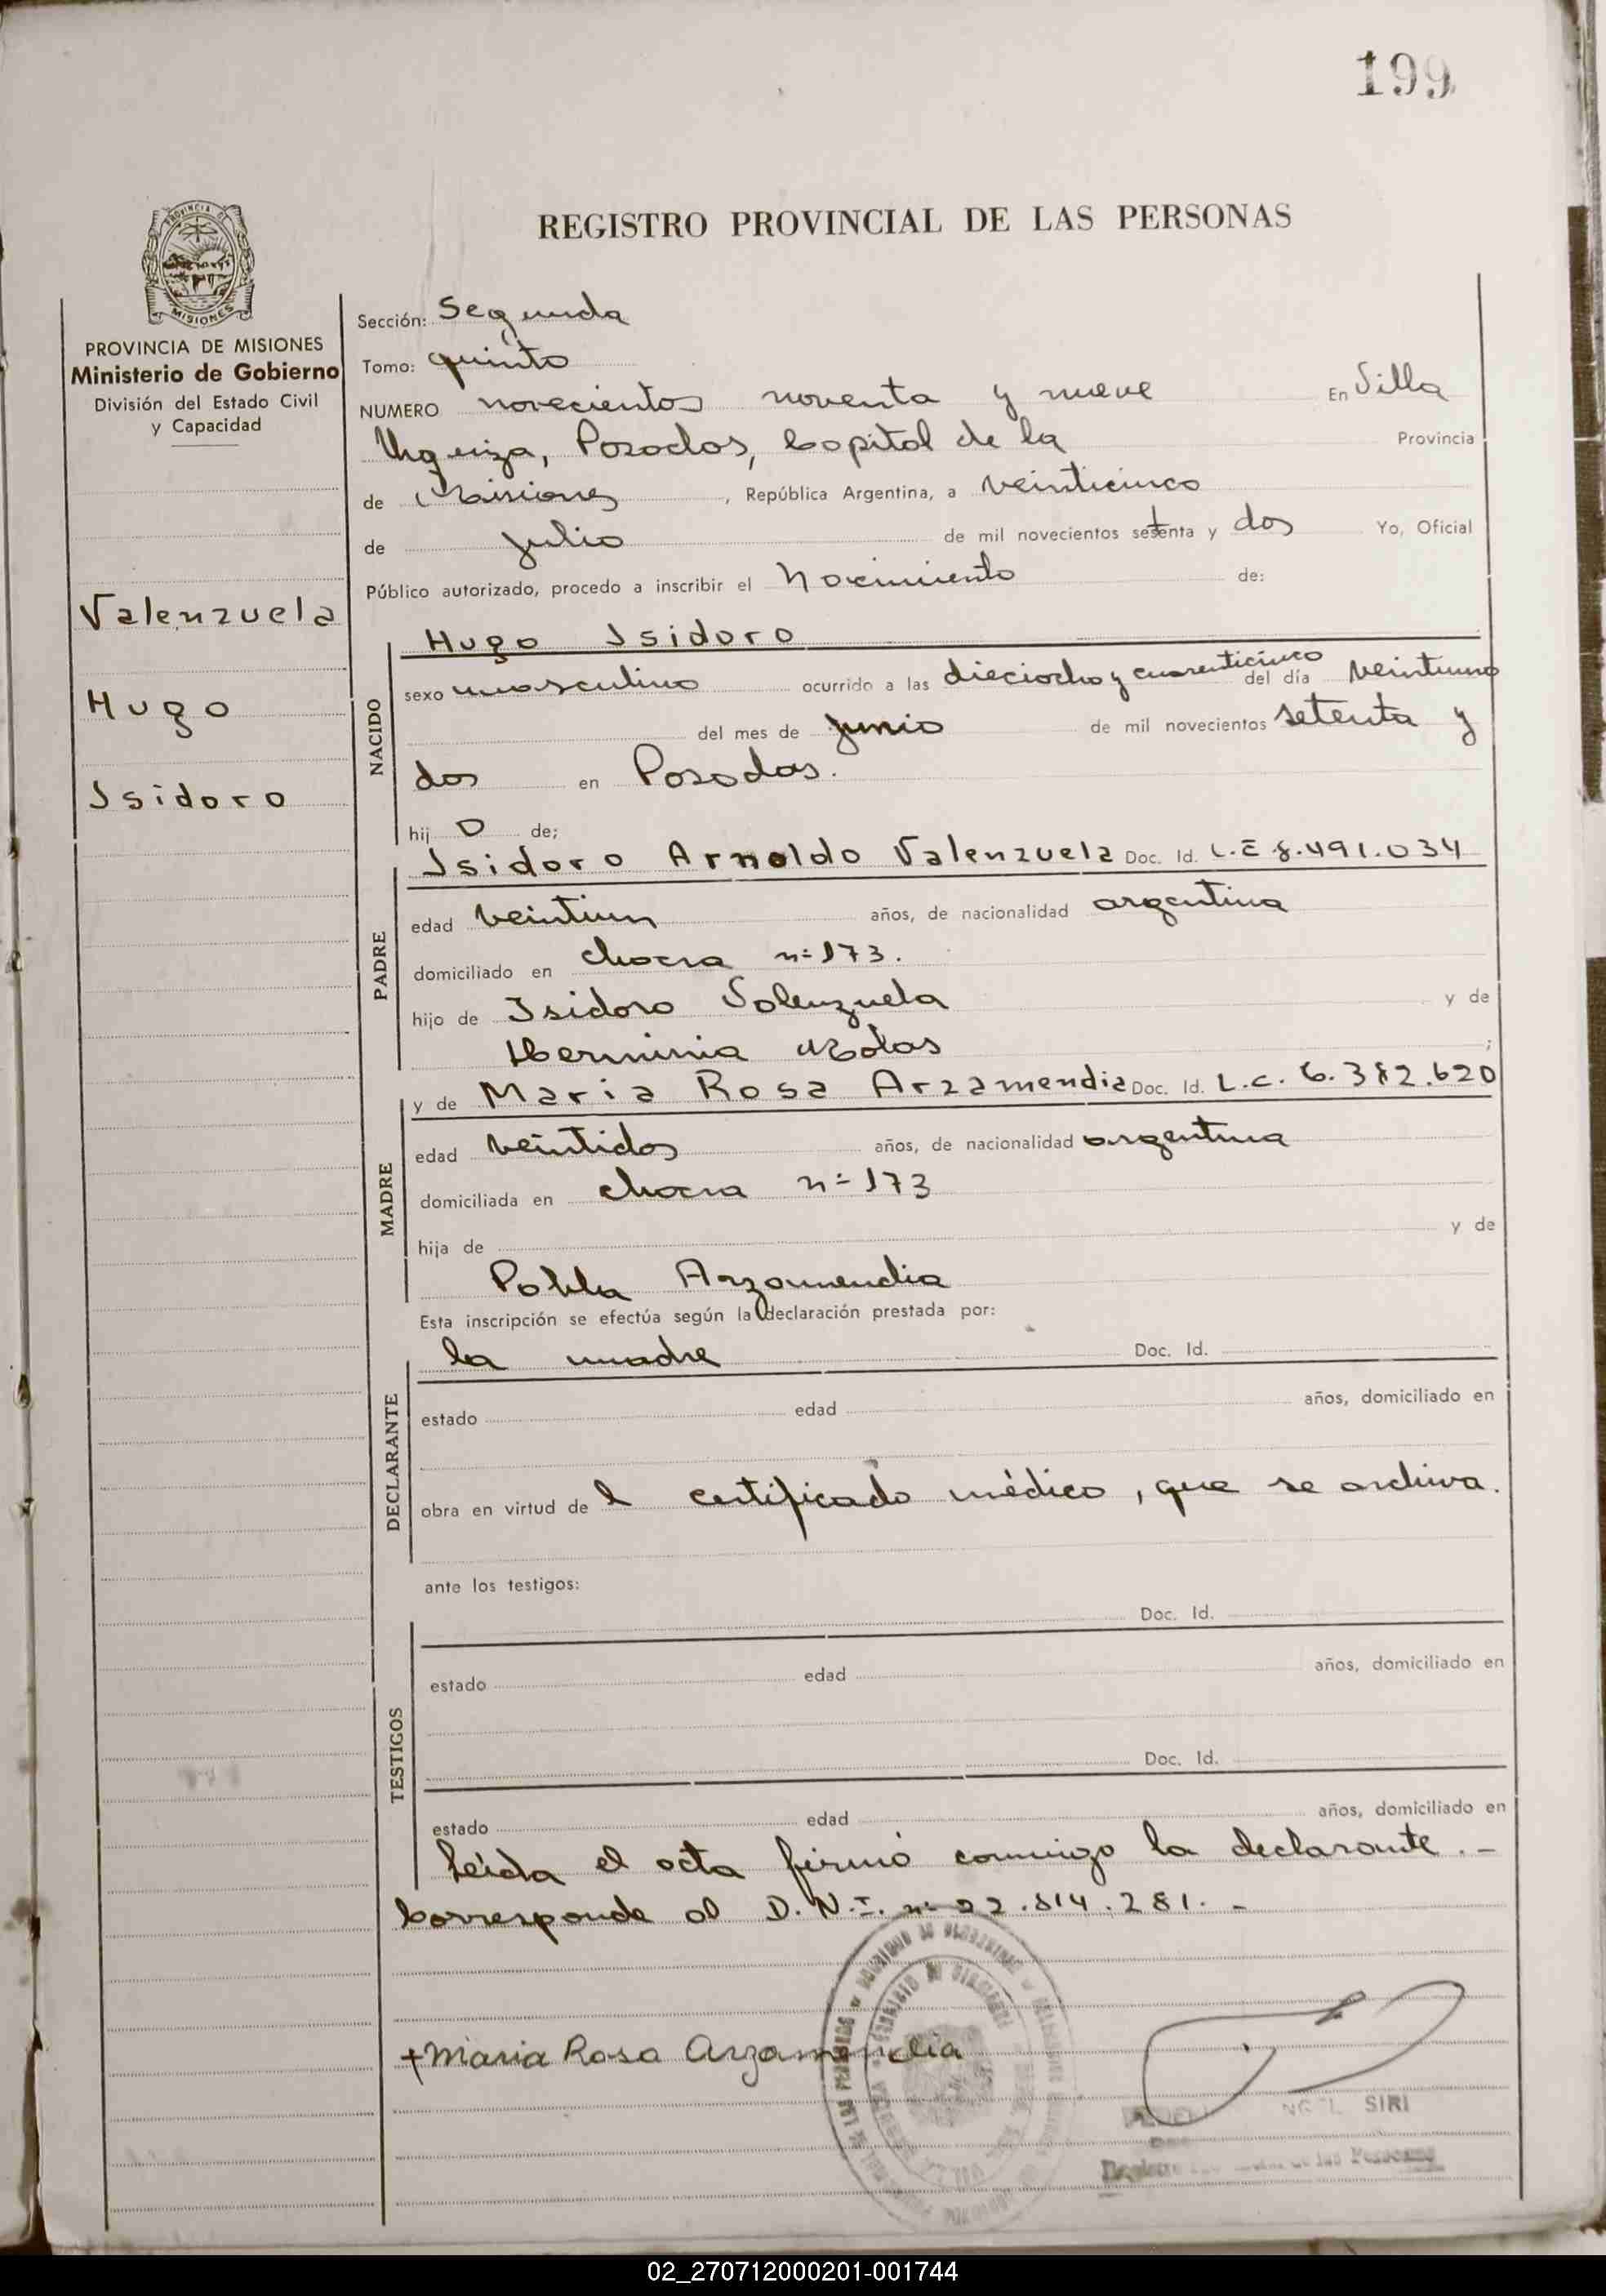 199
REGISTRO PROVINCIAL DE LAS PERSONAS
PROVINCIA DE MISIONES
Ministerio de Gobierno
División del Estado Civil
y Capacidad
Valenzuela
Hugo
Isidoro
Sección: Segunda
Tomo: quinto
NUMERO novecientos noventa y nueve En Villa
Urquiza, Posadas, Capital de la Provincia
de Misiones, República Argentina, a veinticinco
de julio de mil novecientos setenta y dos Yo, Oficial
Público autorizado, procedo a inscribir el Nacimiento de:
NACIDO
Hugo Isidoro
sexo masculino ocurrido a las dieciocho y cuarenticinco del día veintiuno
del mes de junio de mil novecientos setenta y
dos en Posadas.
hij o de;
PADRE
Isidoro Arnoldo Valenzuela Doc. Id. L.E 8.491.034
edad veintiun años, de nacionalidad argentina
domiciliado en chacra nº 173.
hijo de Isidoro Valenzuela y de
Herminia Molas ;
MADRE
y de Maria Rosa Arzamendia Doc. Id. L.C. 6.382.620
edad veintidos años, de nacionalidad argentina
domiciliada en chacra nº 173
hija de y de
Pabla Arzamendia
Esta inscripción se efectúa según la declaración prestada por:
DECLARANTE
la madre Doc. Id.
estado edad años, domiciliado en
obra en virtud de l certificado médico, que se archiva.
ante los testigos:
Doc. Id.
TESTIGOS
estado edad años, domiciliado en
Doc. Id.
estado edad años, domiciliado en
Leída el acta firmó conmigo la declarante.-
Corresponde al D.N.I. nº 22.814.281.-
+Maria Rosa Arzamendia
SIRI
02_270712000201-001744